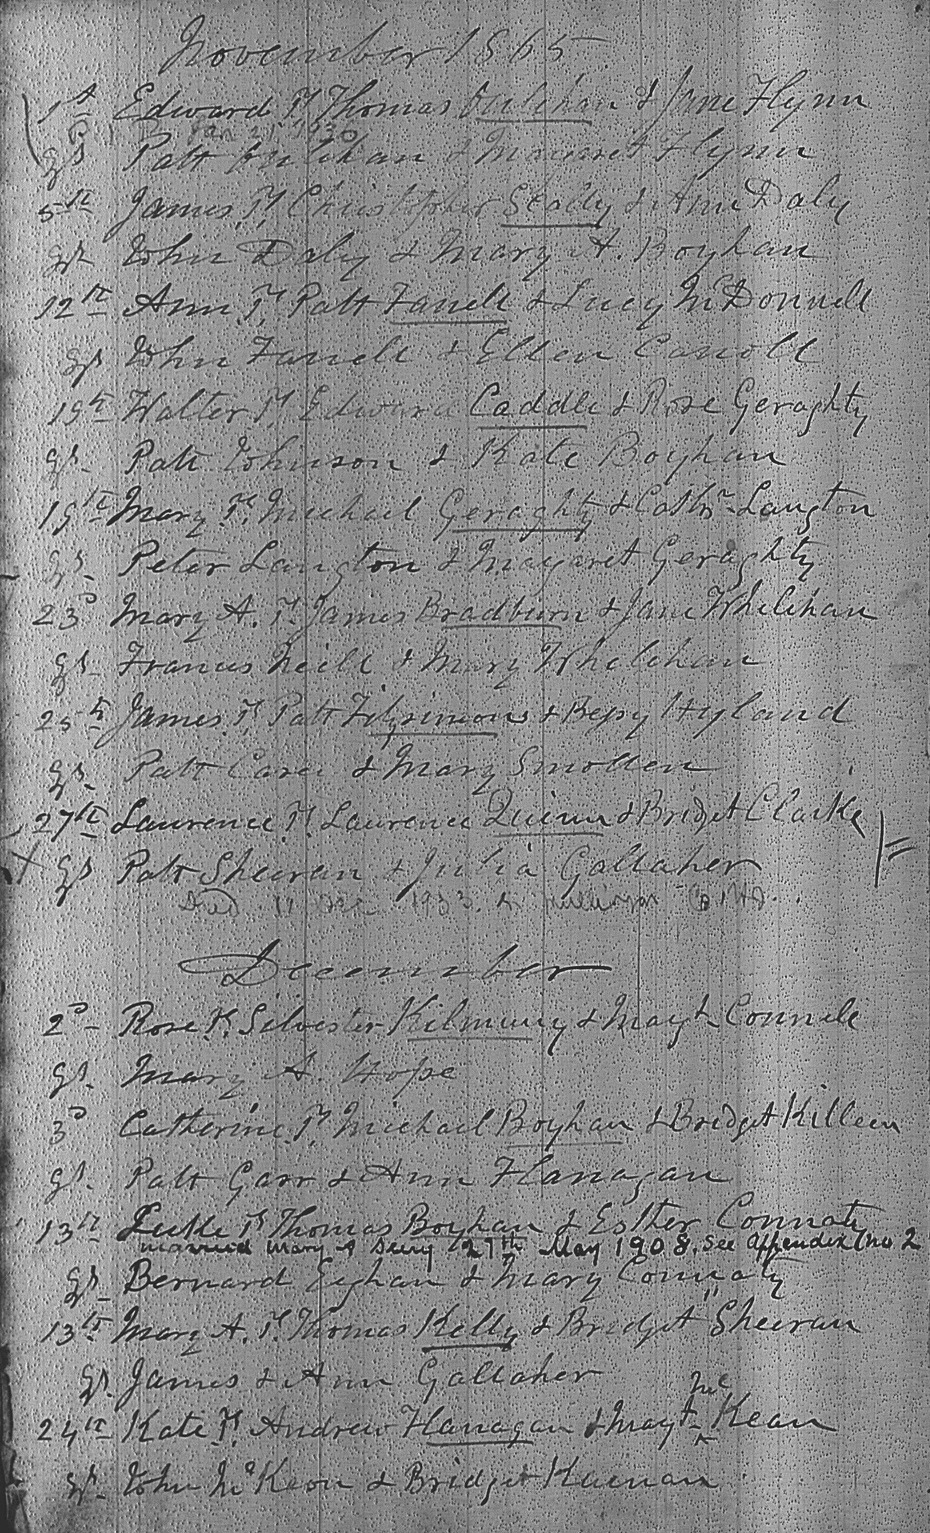 November 1865
1st Edward P. Thomas & Jane Flynn
Jan 21 1930
gs Patt & Margaret Flynn
5th James P. Christopher Scally & Ann Daly
gs. John Daly & Mary A. Boyhan
12th Ann P. Patt Farrell & Lucy McDonnell
gs John Farrell & Ellen Carroll
19th Walter P. Edward Caddle & Rose Geraghty
gs. Patt Johnson & Kate Boyhan
19th Mary P. Michael Geraghty & Cathr. Langton
gs. Peter Langton & Magaret Geraghty
23d Mary A. P. James Bradburn & Jane Whelehan
gs. Francis Neill & Mary Whelehan
25th James P. Patt Fitzsimons & Bessy Hyland
gs. Patt & Mary Smollen
27th Laurence P. Laurence Quinn & Bridget Clarke
gs Patt Sheeran & Julia Gallaher
Died 11 Dec
December
2d Rose P. Silvester & Magt Connell
gs. Mary A. Hope
3d Catherine P. Michael Boyhan & Bridget Killeen
gs. Patt Garr & Ann Flanagan
13th Luke P. Thomas Boyhan & Esther Connaty
married Mary A 27th May 1908. See appendix (no 2
gs. Bernard & Mary Connaty
13th Mary A. P. Thomas Kelly & Bridget Sheeran
gs. James & Ann Gallaher
24th Kate P. Andrew Flanagan & Magt Mc Kean
gs. John McKeon & Bridget Keenan